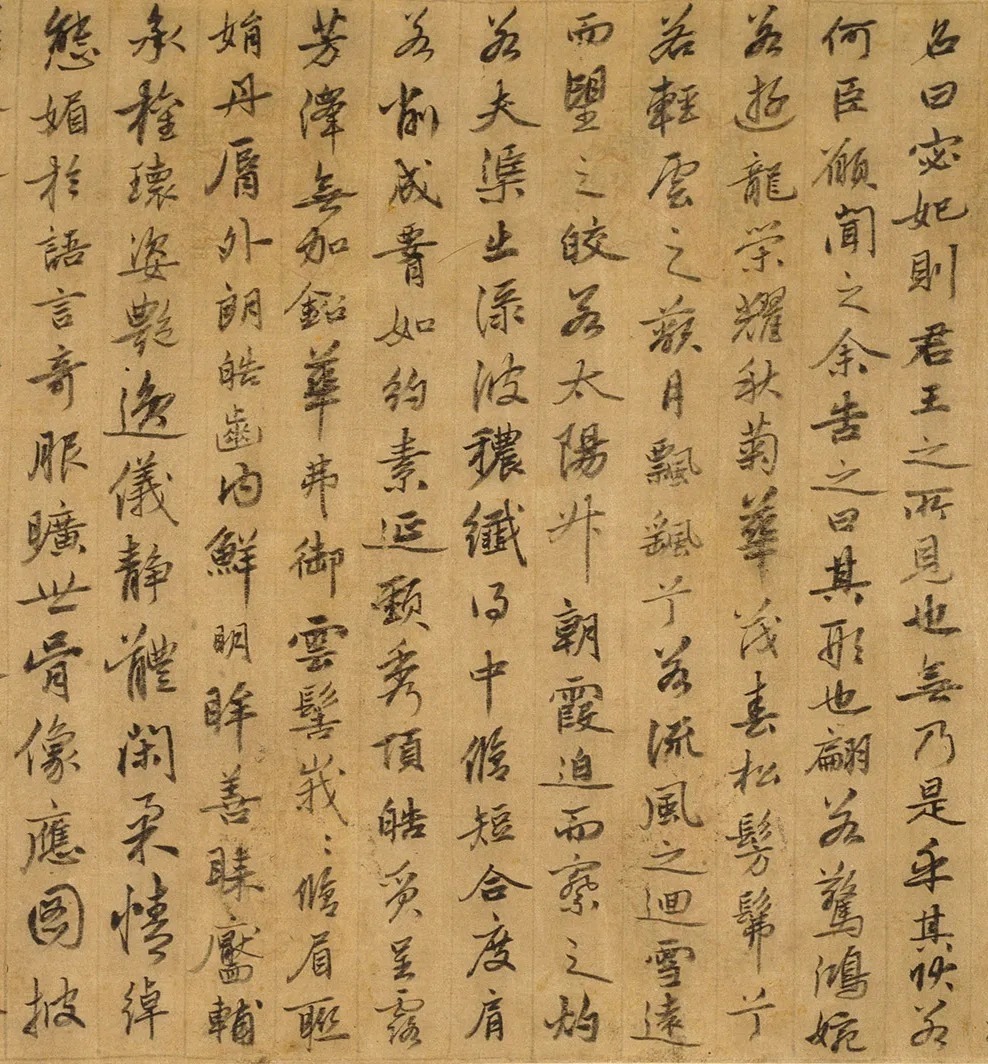 名曰宓妃則君王之所見也無乃是乎其狀若
何臣願聞之余告之曰其形也翩若驚鴻婉
若遊龍榮耀秋菊華茂春松髣髴兮
若輕雲之蔽月飄颻兮若流風之迴雪遠
而望之皎若太陽升朝霞迫而察之灼
若夫渠出淥波穠纖得中脩短合度肩
若削成腰如約素延頸秀項皓質呈露
芳澤無加鉛華弗御雲髻峩〻脩眉聯
娟丹脣外朗皓齒內鮮明眸善睞靨輔
承權瓌姿艷逸儀靜體閑柔情綽
態媚於語言奇服曠世骨像應圖披